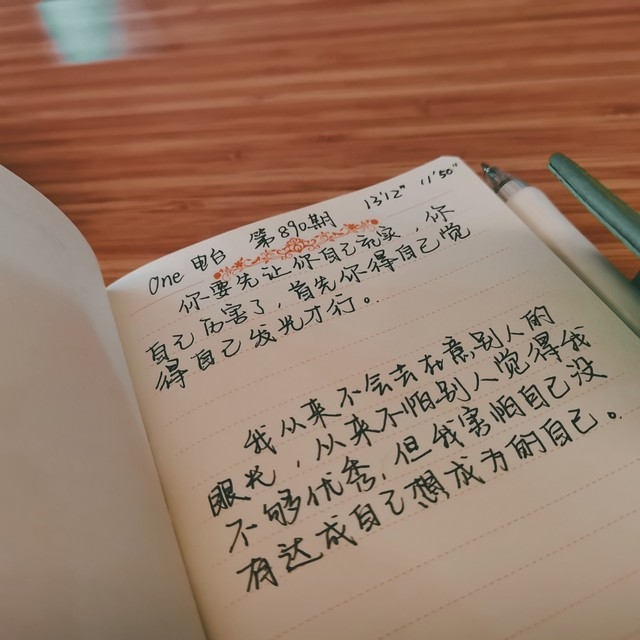 One 电台 第890期 13'12" 11'50"
你要先让你自己充实，你
自己厉害了，首先你得自己觉
得自己发光才行。
我从来不会去在意别人的
眼光，从来不怕别人觉得我
不够优秀，但我害怕自己没
有达成自己想成为的自己。